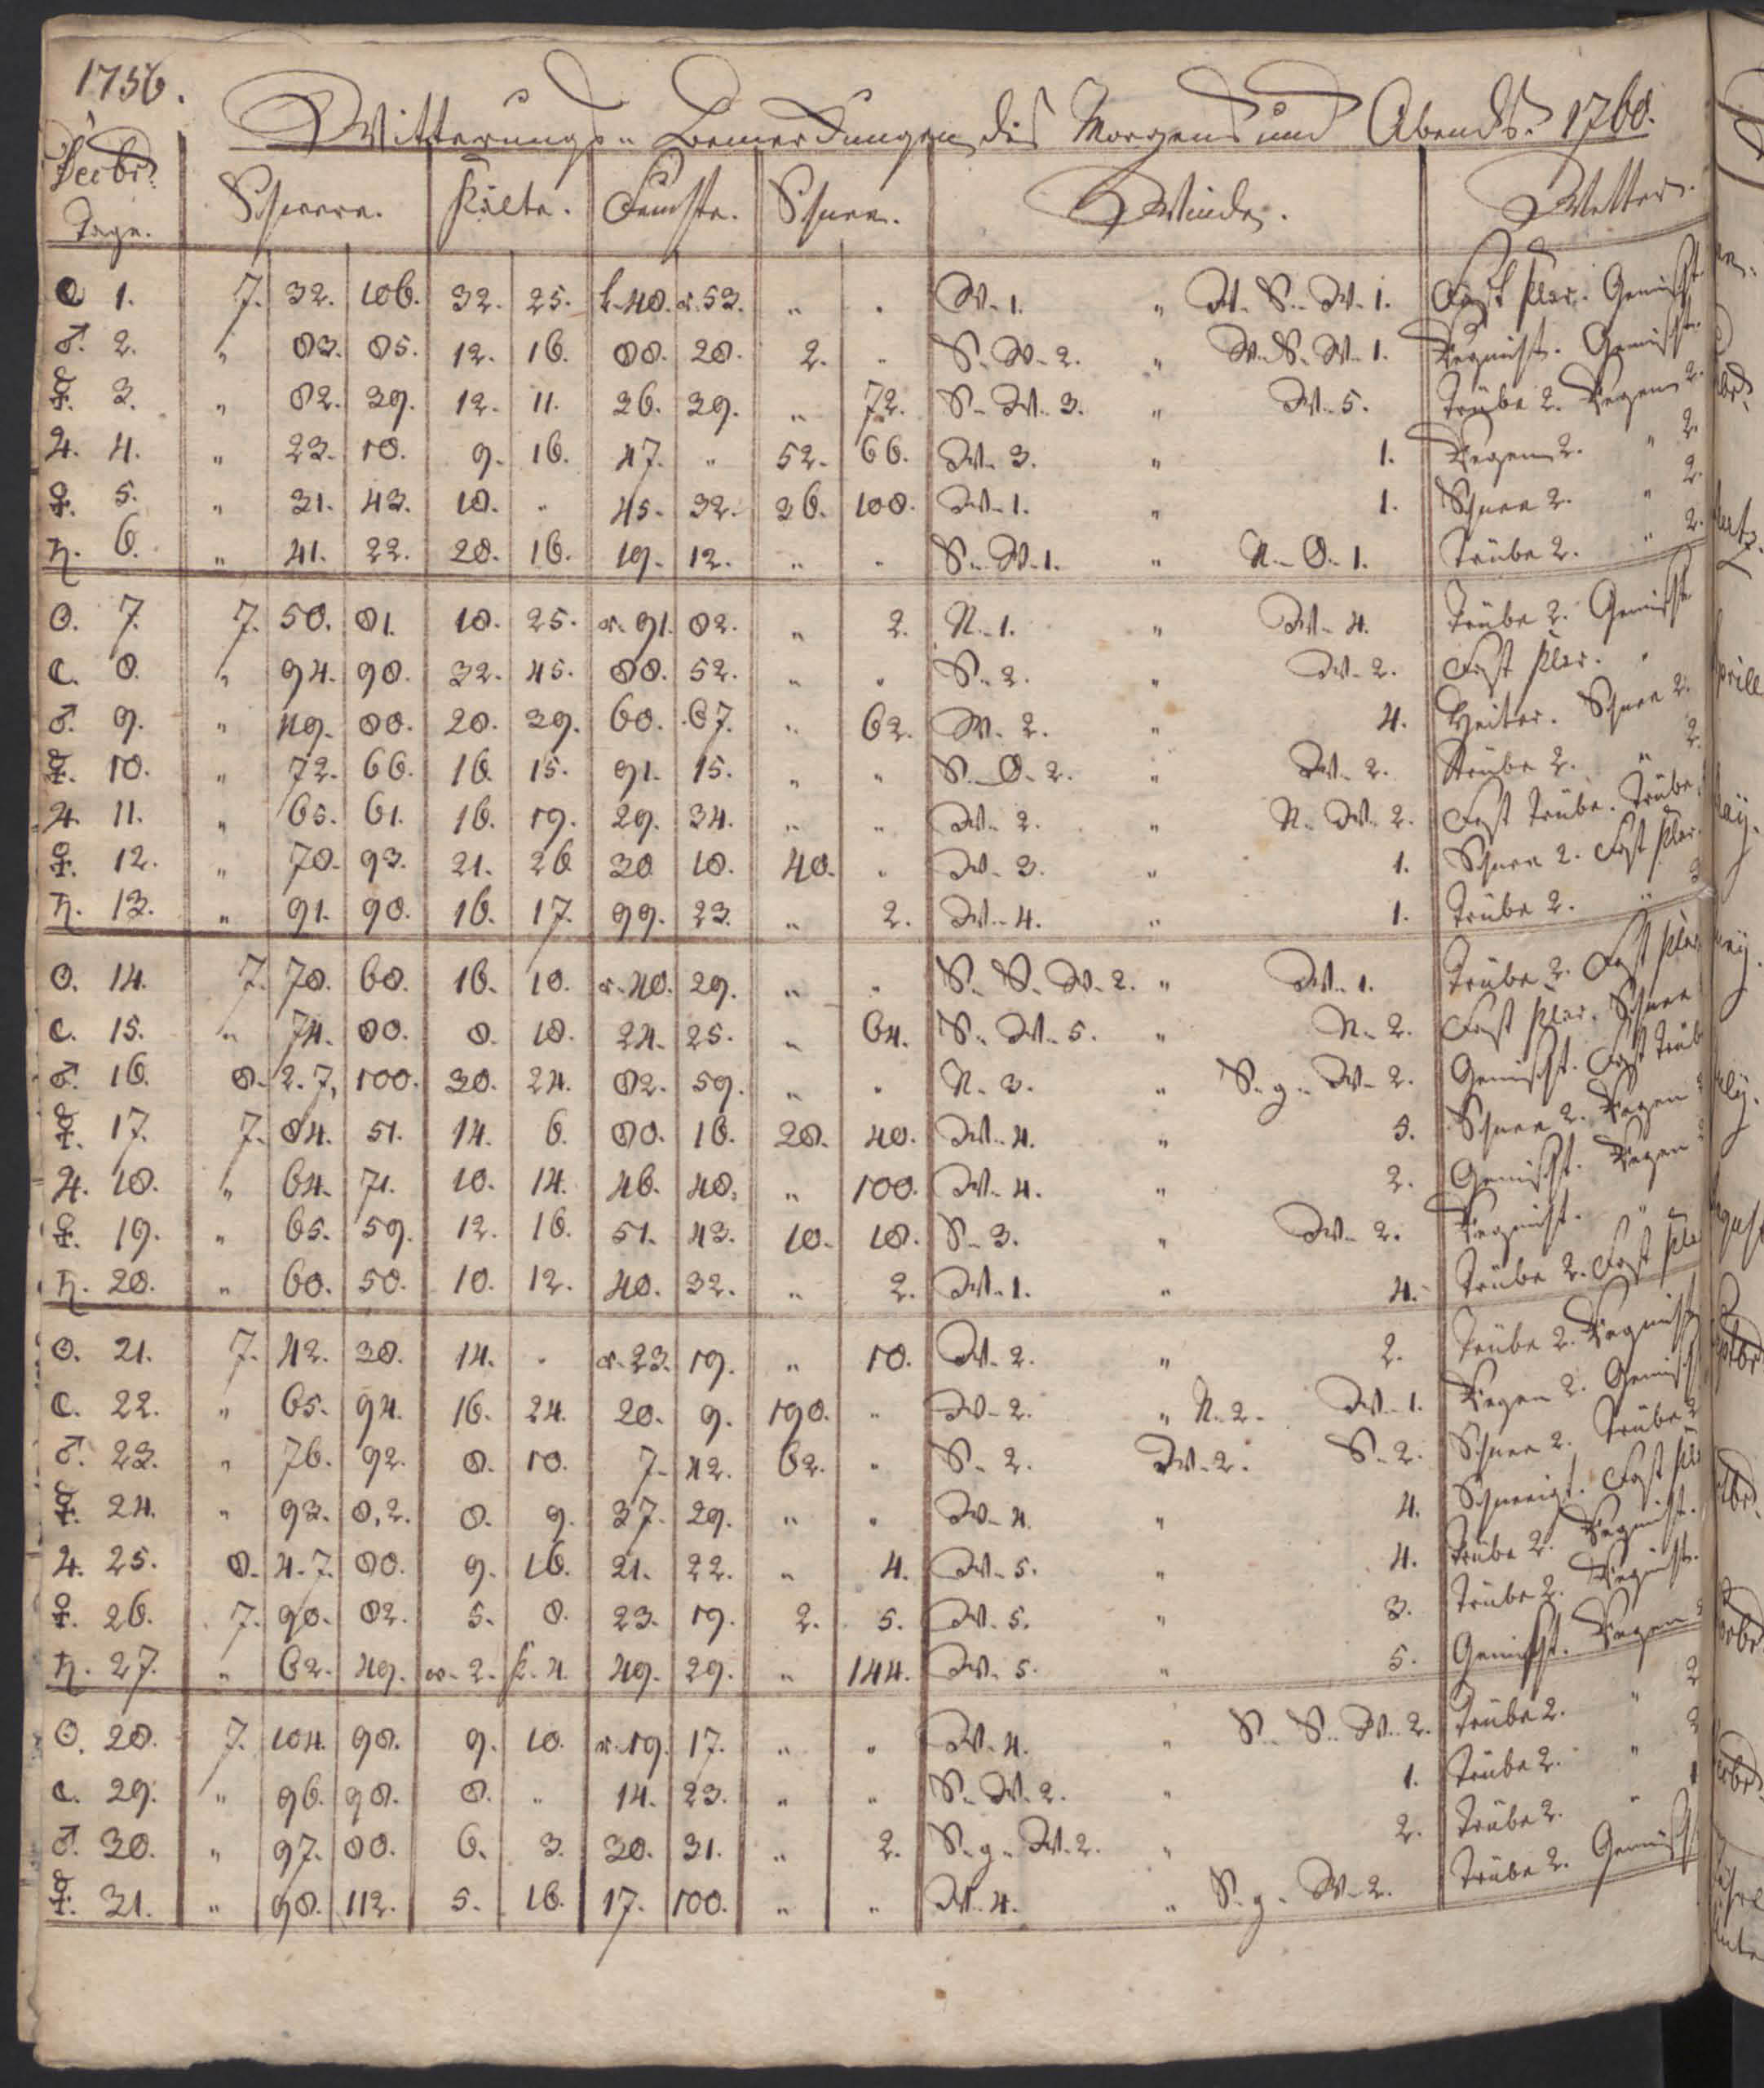 1756.
Witterungs- Bemerkungen des Morgens und Abends. 1760.
Decbr. Tage. Schwere. Kälte. Feuchte. Schnee. Winde. Wetter.
☾ 1. 7. 32. 106. 32. 25. k. 48. r. 53. " . W. 1. " W. S. W. 1. Fast klar. Gemischt.
♂. 2. " 83. 85. 12. 16. 88. 28. 2. . S. W. 2. " W. S. W. 1. Regnicht. Gemischt.
☿. 3. " 82. 39. 12. 11. 36. 39. " 72. S. W. 3. " W. 5. Trübe 2. Regen 2.
♃. 4. " 23. 18. 9. 16. 47. " 52. 66. W. 3. " 1. Regen 2. " 2.
♀. 5. " 31. 43. 18. . 45. 32. 36. 108. W. 1. " 1. Schnee 2. " 2.
♄. 6. " 41. 22. 20. 16. 19. 12. " . S. W. 1. " N. O. 1. Trübe 2. " 2.
☉. 7. 7. 50. 81. 18. 25. r. 91. 82. " 2. N. 1. " W. 4. Trübe 2. Gemischt
☾. 8. " 94. 98. 32. 45. 88. 52. " . S. 2. " W. 2. Fast klar. .
♂. 9. " 49. 80. 28. 39. 60. 67. " 62. W. 2. " 4. Heiter. Schnee 2.
☿. 10. " 72. 66. 16. 15. 91. 15. " " S. O. 2. " W. 2. Trübe 2. " 2.
♃. 11. " 65. 61. 16. 19. 29. 34. " " W. 2. " N. W. 2. Fast Trübe. Trübe
♀. 12. " 78. 93. 21. 26 30 18. 40. . W. 3. " 1. Schnee 2. Fast klar.
♄. 13. " 91. 90. 16. 17. 99. 23. " 2. W. 4. " 1. Trübe 2. "
☉. 14. 7. 78. 68. 16. 10. r. 40. 29. " " S. S. W. 2. " W. 1. Trübe 2. Fast klar
☾. 15. " 74. 80. 8. 18. 24. 25. " 64. S. W. 5. " N. 2. Fast klar. Schnee
♂. 16. 8. 2. 7. 100. 30. 24. 82. 59. " . N. 3. " S. g. W. 2. Gemischt. Fast Trüb
☿. 17. 7. 84. 51. 14. 6. 80. 16. 28. 40. W. 4. " 5. Schnee 2. Regen
♃. 18. " 64. 71. 10. 14. 46. 48. " 100. W. 4. " 2. Gemischt. Regen
♀. 19. " 65. 59. 12. 16. 51. 43. 10. 18. S. 3. " W. 2. Regnicht. "
♄. 20. " 60. 50. 10. 12. 40. 32. " 2. W. 1. " 4. Trübe 2. Fast kla
☉. 21. 7. 42. 38. 14. . r. 23. 19. " 10. W. 2. " 2. Trübe 2. Regnicht
☾. 22. " 65. 94. 16. 24. 20. 9. 190. . W. 2. " N. 2. W. 1. Regen 2. Gemisch
♂. 23. " 76. 92. 8. 10. 7. 42. 62. . S. 2. W. 2. S. 2. Schnee 2. Trübe 2
☿. 24. " 93. 8. 2. 8. 9. 37. 29. " . W. 4. " 4. Schneeigt. Fast kl
♃. 25. 8. 4. 7. 80. 9. 16. 21. 22. " 4. W. 5. " 4. Trübe 2. Regnicht.
♀. 26. 7. 90. 82. 5. 8. 23. 19. 2. 5. W. 5. " 3. Trübe 2. Regnicht.
♄. 27. " 62. 49. w. 2. k. 4. 49. 29. " 144. W. 5. " 5. Gemischt. Regen
☉. 28. 7. 104. 98. 9. 10. r. 19. 17. " " W. 4. " S. S. W. 2. Trübe 2. " 2
☾. 29. " 96. 98. 8. " 14. 23. " " S. W. 2. " 1. Trübe 2. " 2
♂. 30. " 97. 80. 6. 3. 30. 31. " 2. S. g. W. 2. " 2. Trübe 2. "
☿. 31. " 98. 112. 5. 16. 17. 100. " " W. 4. " S. g. W. 2. Trübe 2. Gemisch